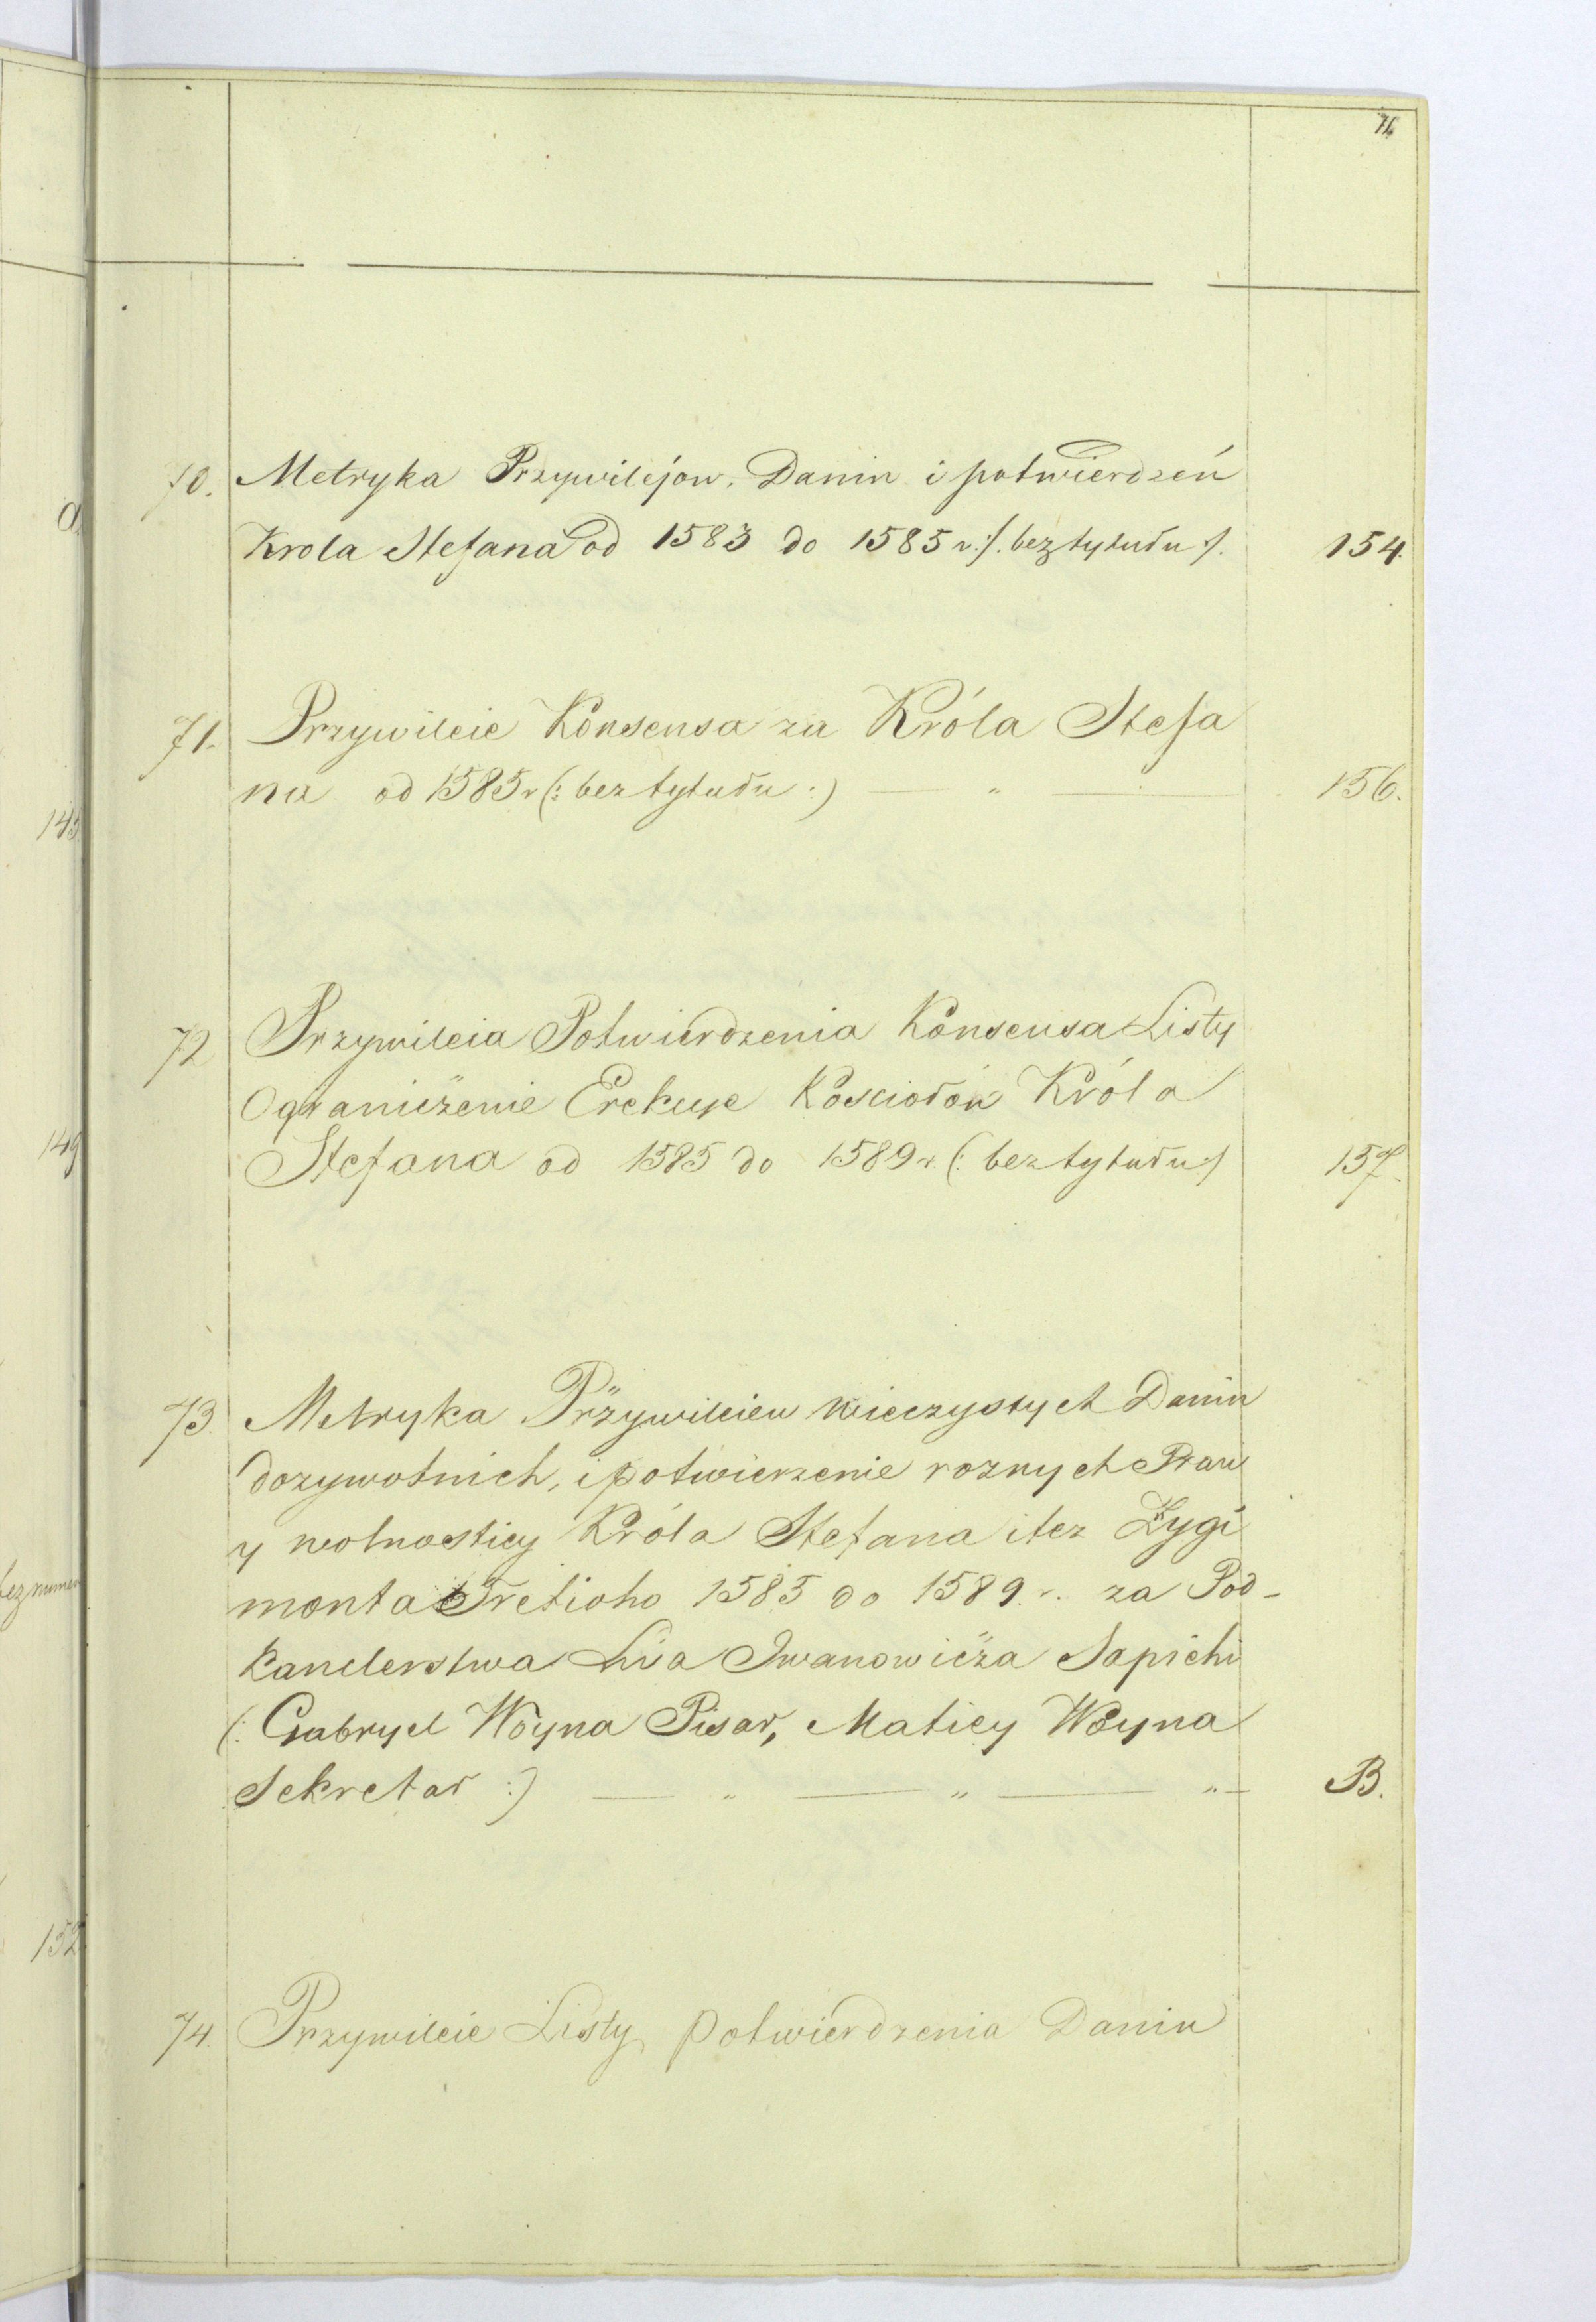 76
70. Metryka Przywilejow, Danin i potwierdzeń
Krola Stefana od 1583 do 1585 r: /. bez tytułu /. 154.
71. Przywileie Konsensa za Króla Stefa
na od 1585 r (: bez tytułu :) — „ — 156.
72 Przywileia Potwierdzenia Konsensa Listy
Ograniczenie Erekcye Kosciołow Króla
Stefana od 1585 do 1589 r (: bez tytułu :) 157.
73. Metryka Przywileiew wieczystych Danin
dozywotnich, i potwierzenie roznych Praw
y wolnosticy Króla Stefana itez Zygi
monta Tretioho 1585 do 1589 r. za Pod-
kanclerstwa Lwa Iwanowicza Sapiehi
(: Gabryel Woyna Pisar, Maticy Woyna
Sekretar :) — „ — „ — „ — B.
74. Przywileie Listy potwierdzenia Danin
145
149
bez numer
152